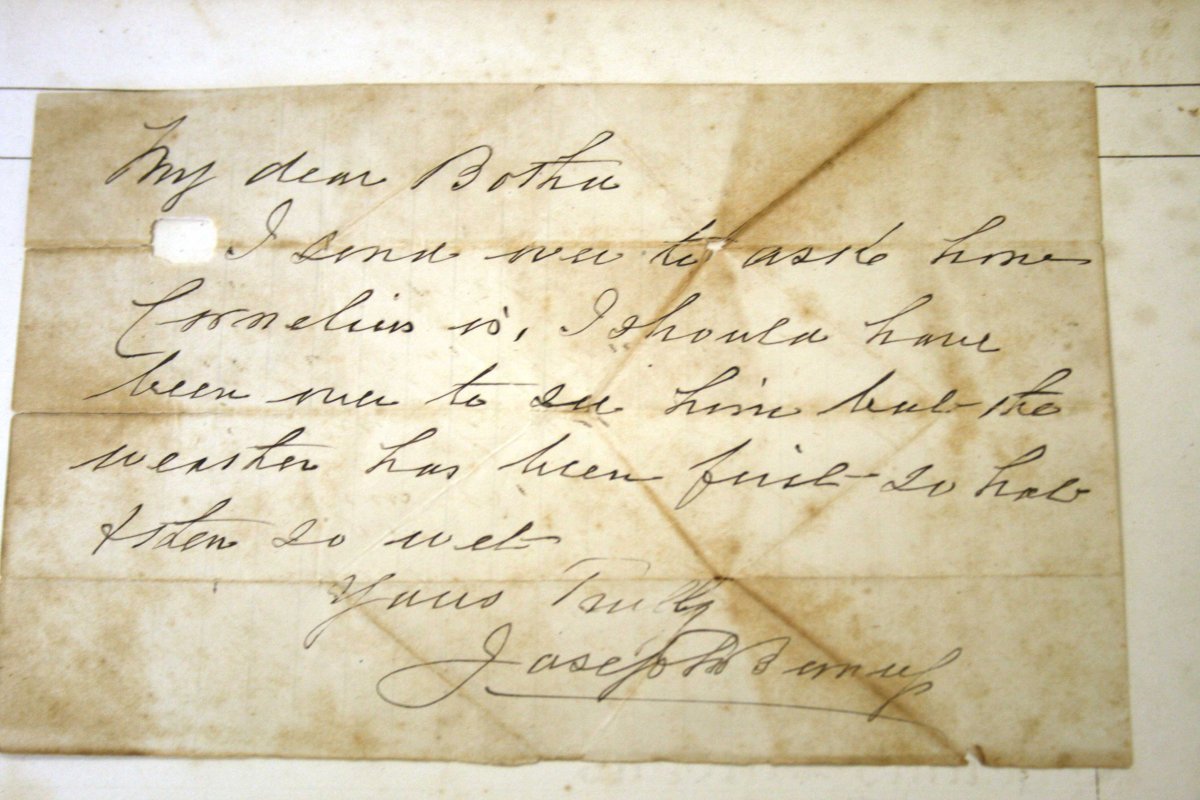 My dear Botha
I send over to ask how
Cornelius is, I should have
been over to see him but the
weather has been first so hot
& then so wet
Yours Trully
Joseph